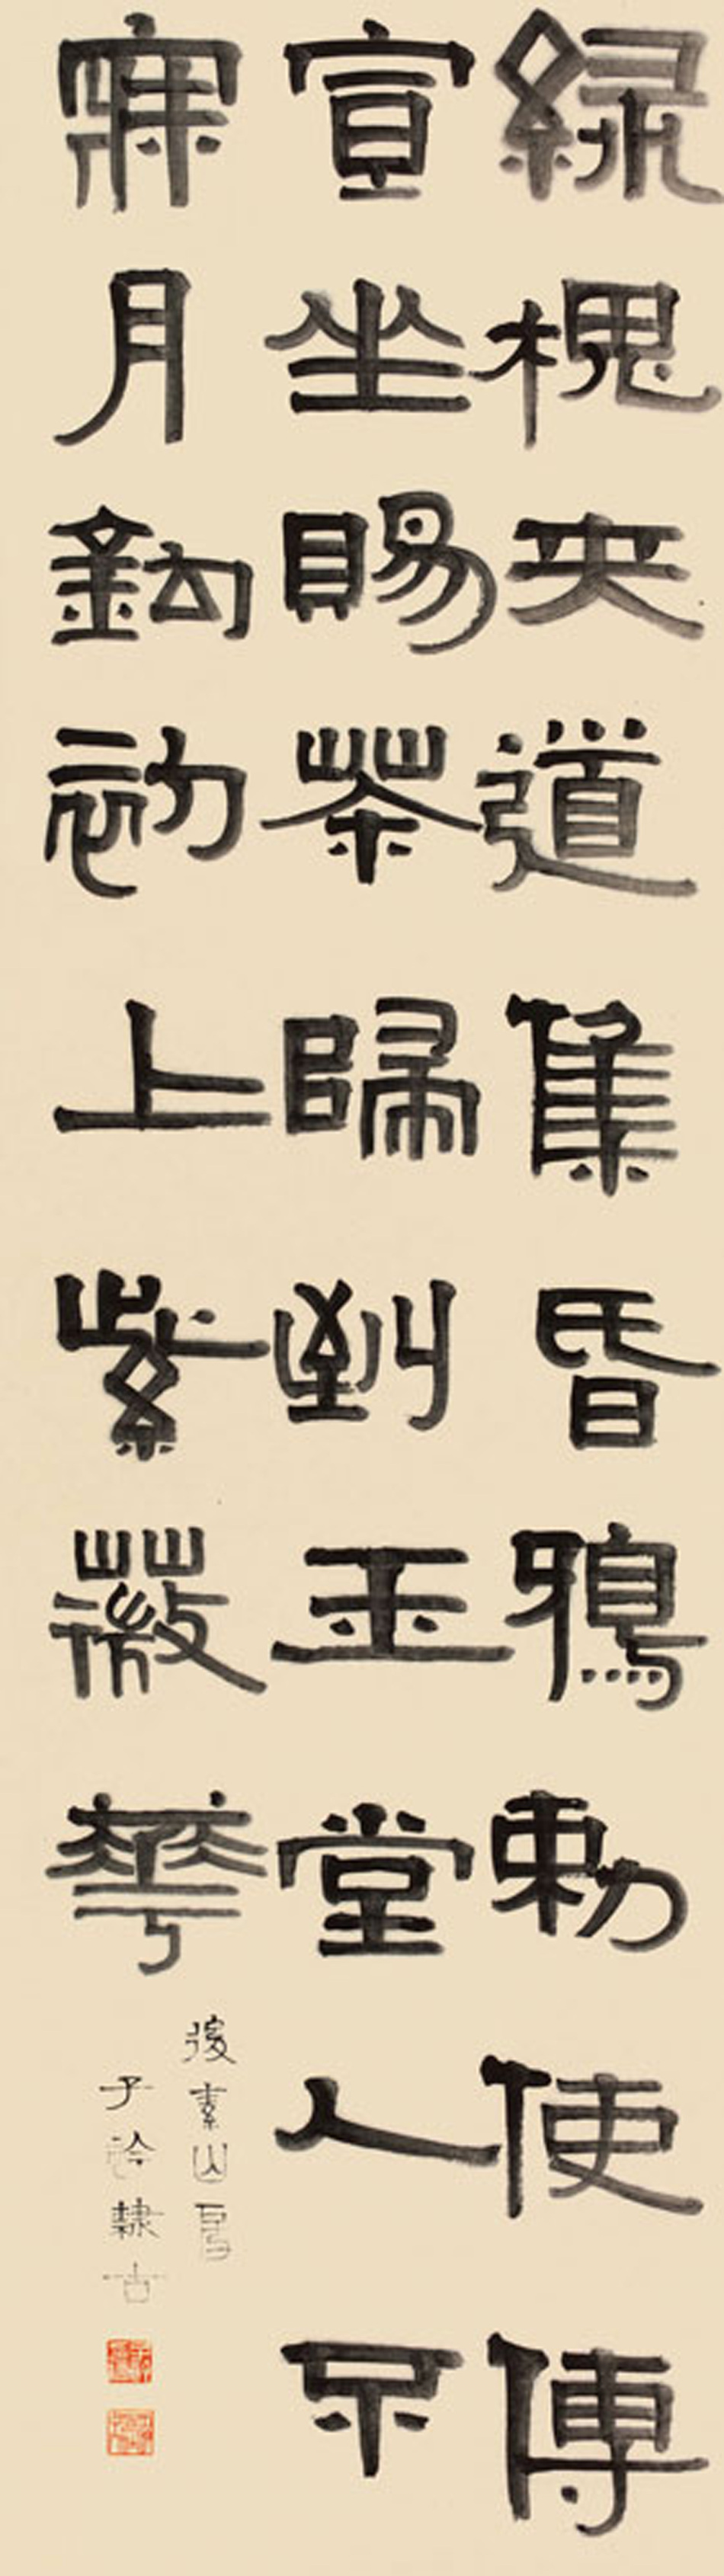 綠槐夾道集昏鴉勅使傳
宣坐賜茶歸到玉堂人不
寐月鈎初上紫薇華
後素山房
子衿隸古